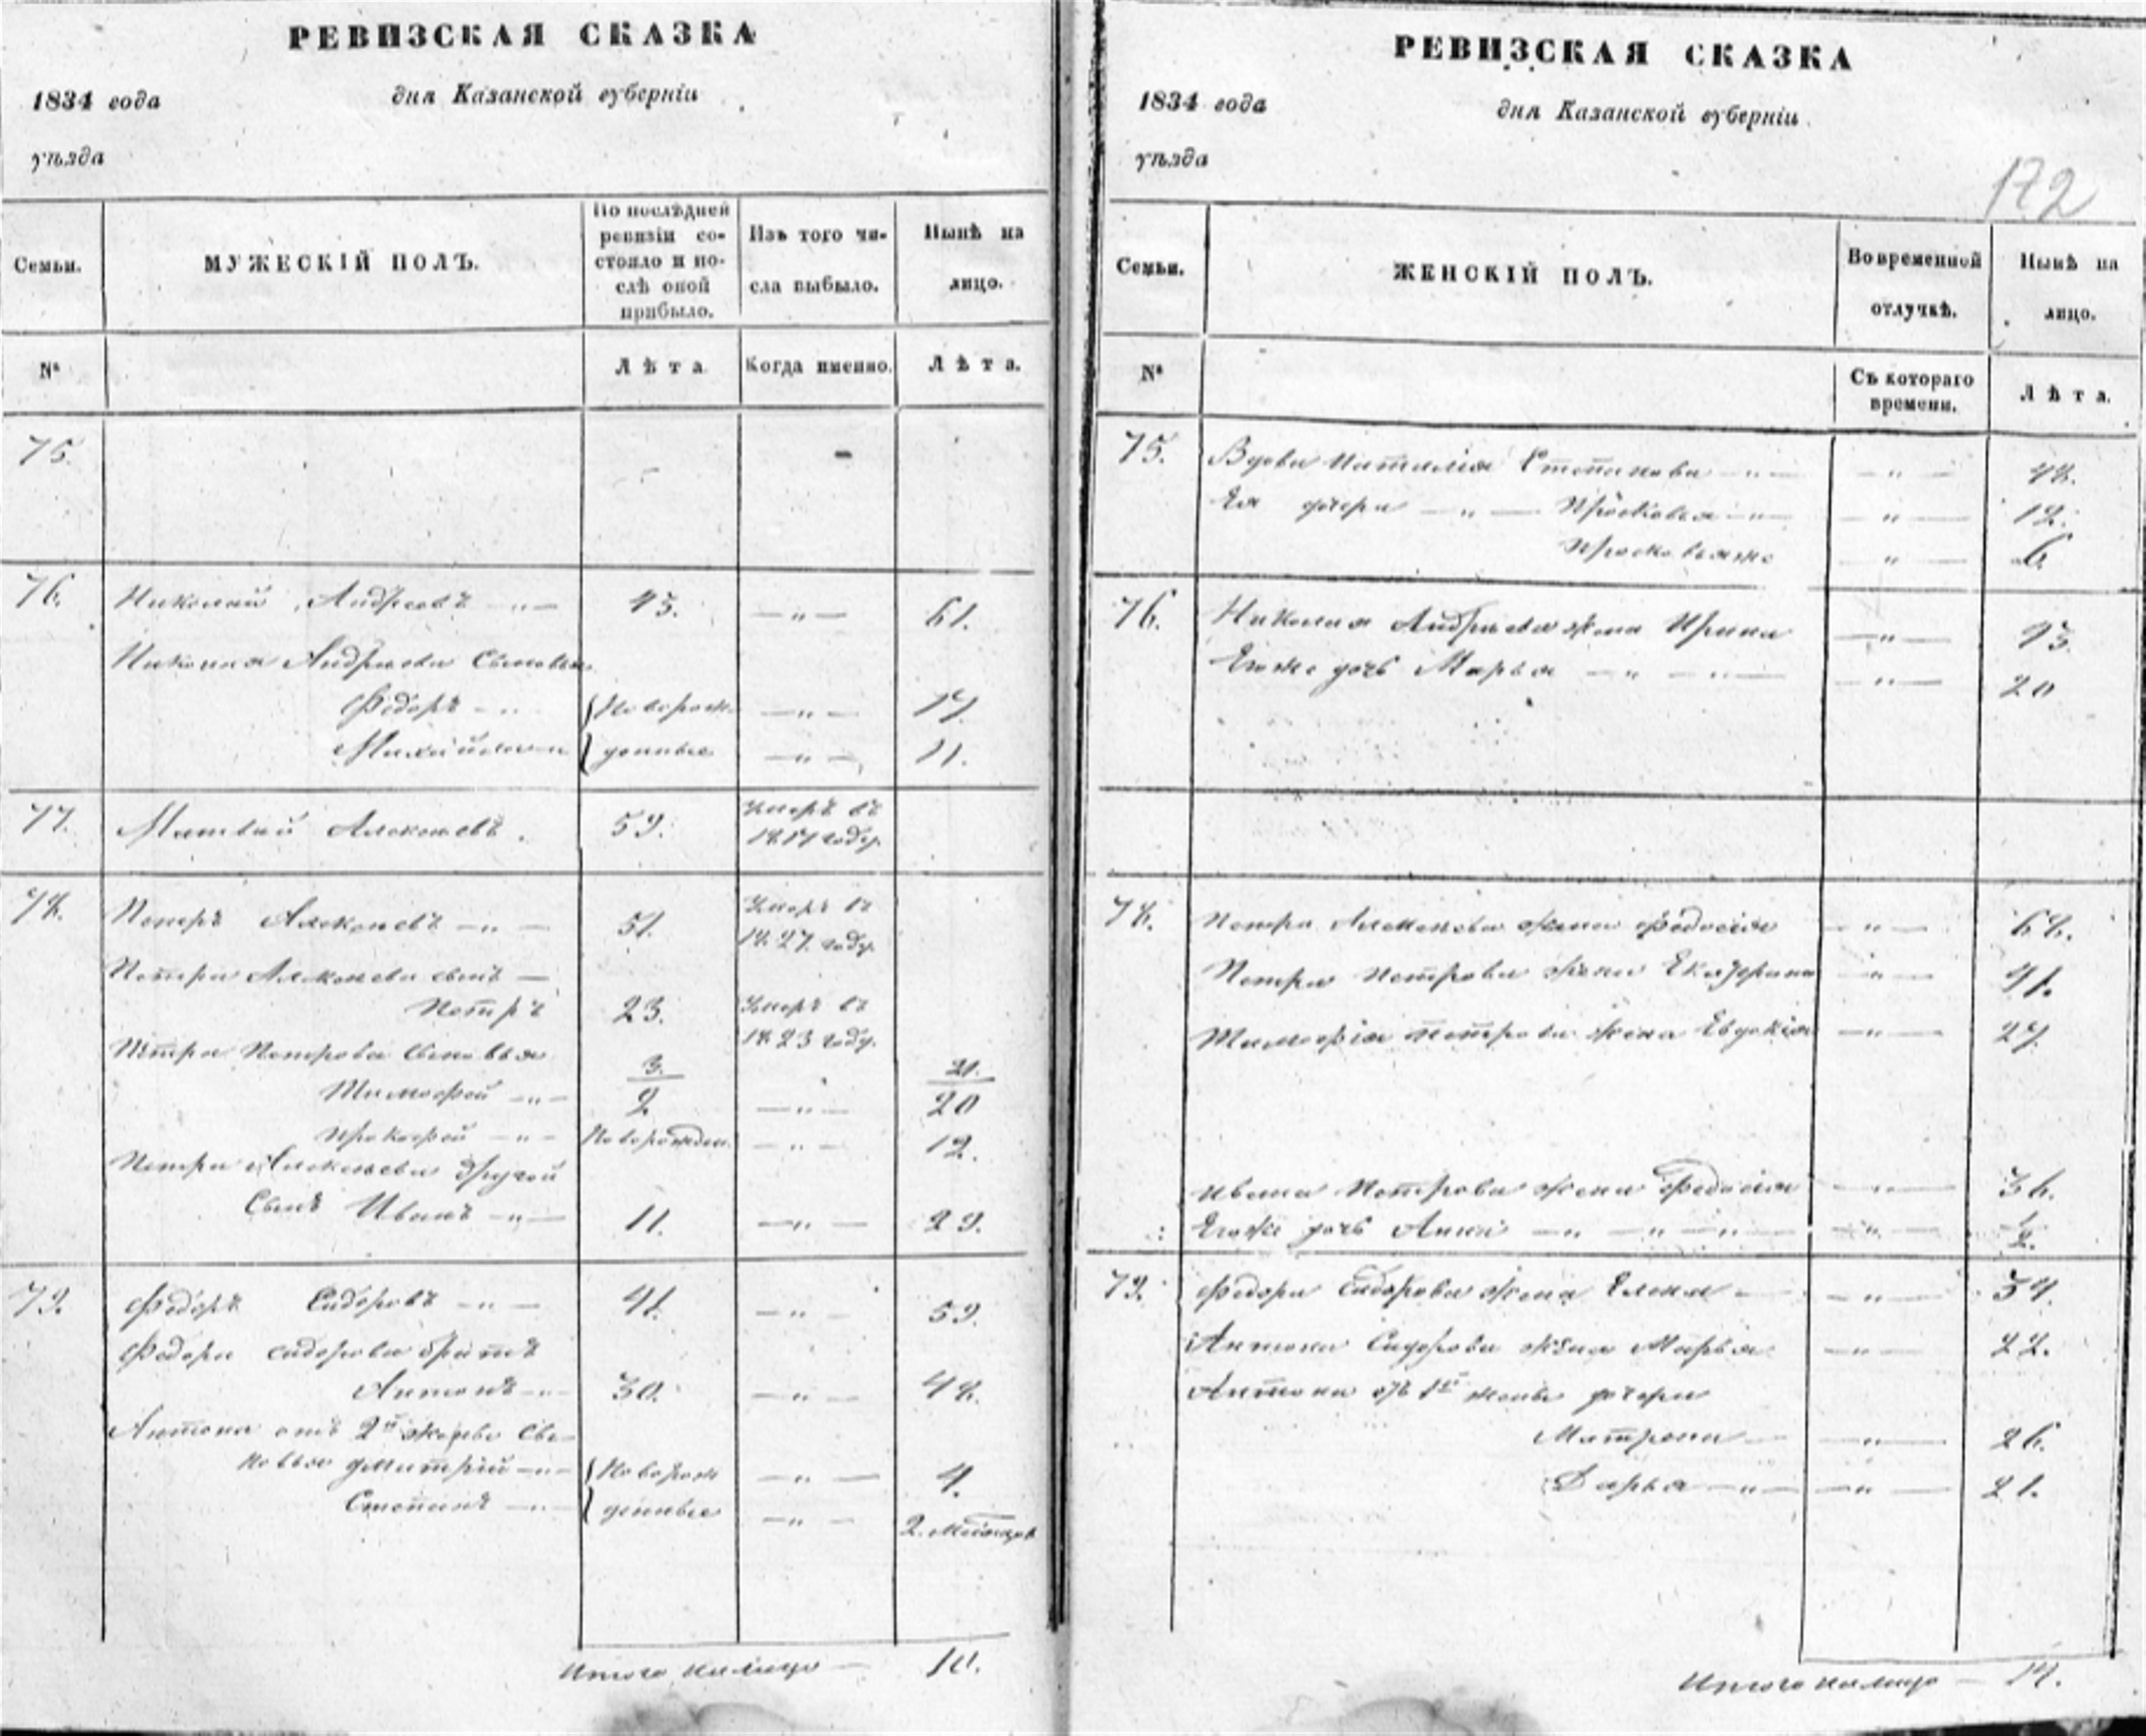 РЕВИЗСКАЯ СКАЗКА
1834 года дня Казанской губерніи
уѣзда
Семьи.
МУЖЕСКІЙ ПОЛЪ.
По послѣдней ревизіи со-
стояло и по-
слѣ оной
прибыло.
Изъ того чи-
сла выбыло.
Нынѣ на
лицо.
№
Лѣта
Когда именно.
Лѣта.
75.
76. Николай Андреевъ 43. 61.
Николая Андреева сыновья
Федоръ Новорож- 17.
Михайла денные 11.
77. Матвей Алексеевъ 59. Умеръ въ
1817 году.
78. Петръ Алексеевъ 51. Умеръ въ
1827 году.
Петра Алексеева сынъ
Петръ 23. Умеръ въ
1823 году.
Петра Петрова сыновья 3. 21.
Тимофей 2 20
Прокофей Новорожден. 12.
Петра Алексеева другой
Сынъ Иванъ 11. 29.
79. Федоръ Сидоровъ 41. 59.
Федора Сидорова братъ
Антонъ 30. 48.
Антона отъ 2й жены сы-
новья Дмитрій Новорож 4.
Степанъ денные 2. месяцовъ
Итого налицо 10.
РЕВИЗСКАЯ СКАЗКА
1834 года дня Казанской губерніи
уѣзда
172
Семьи.
ЖЕНСКІЙ ПОЛЪ.
Во временной
отлучкѣ.
Нынѣ на
лицо.
№
Съ котораго
времени.
Лѣта.
75. Вдова Наталия Степанова 48.
Ея дочери Прасковья 12.
Прасковья же 6.
76. Николая Андреева жена Ирина 43
Его же дочь Марья 20
78. Петра Алексеева жена Федосія 68.
Петра Петрова жена Екатерина 41.
Тимофія Петрова жена Евдокія 27.
Ивана Петрова жена Федосія 36.
Его же дочь Анна 1/2.
79. Федора Сидорова жена Елена 54.
Антона Сидорова жена Марья 22.
Антона отъ 1й жены дочери
Матрена 26.
Дарья 21.
Итого налицо 14.